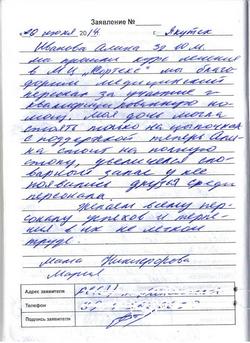 Заявление №
20 июня 2014. г Якутск
Иванова Алина 3г 10 м.
мы прошли курс лечения
в МЦ „Сэргэх” мы благо-
дарим медицинский
персонал за участие и
квалифицированную по-
мощь. Моя дочь могла
стоять только на цыпочках
с поддержкой теперь Али-
на стоит на полную
стопу, увеличился сло-
варный запас у нее
появились друзья среди
персонала.
Желаем всему пер-
соналу успехов и терпе-
ния в их не легком
труде.
Мама Никифорова
Мария
Адрес заявителя
Телефон
Подпись заявителя